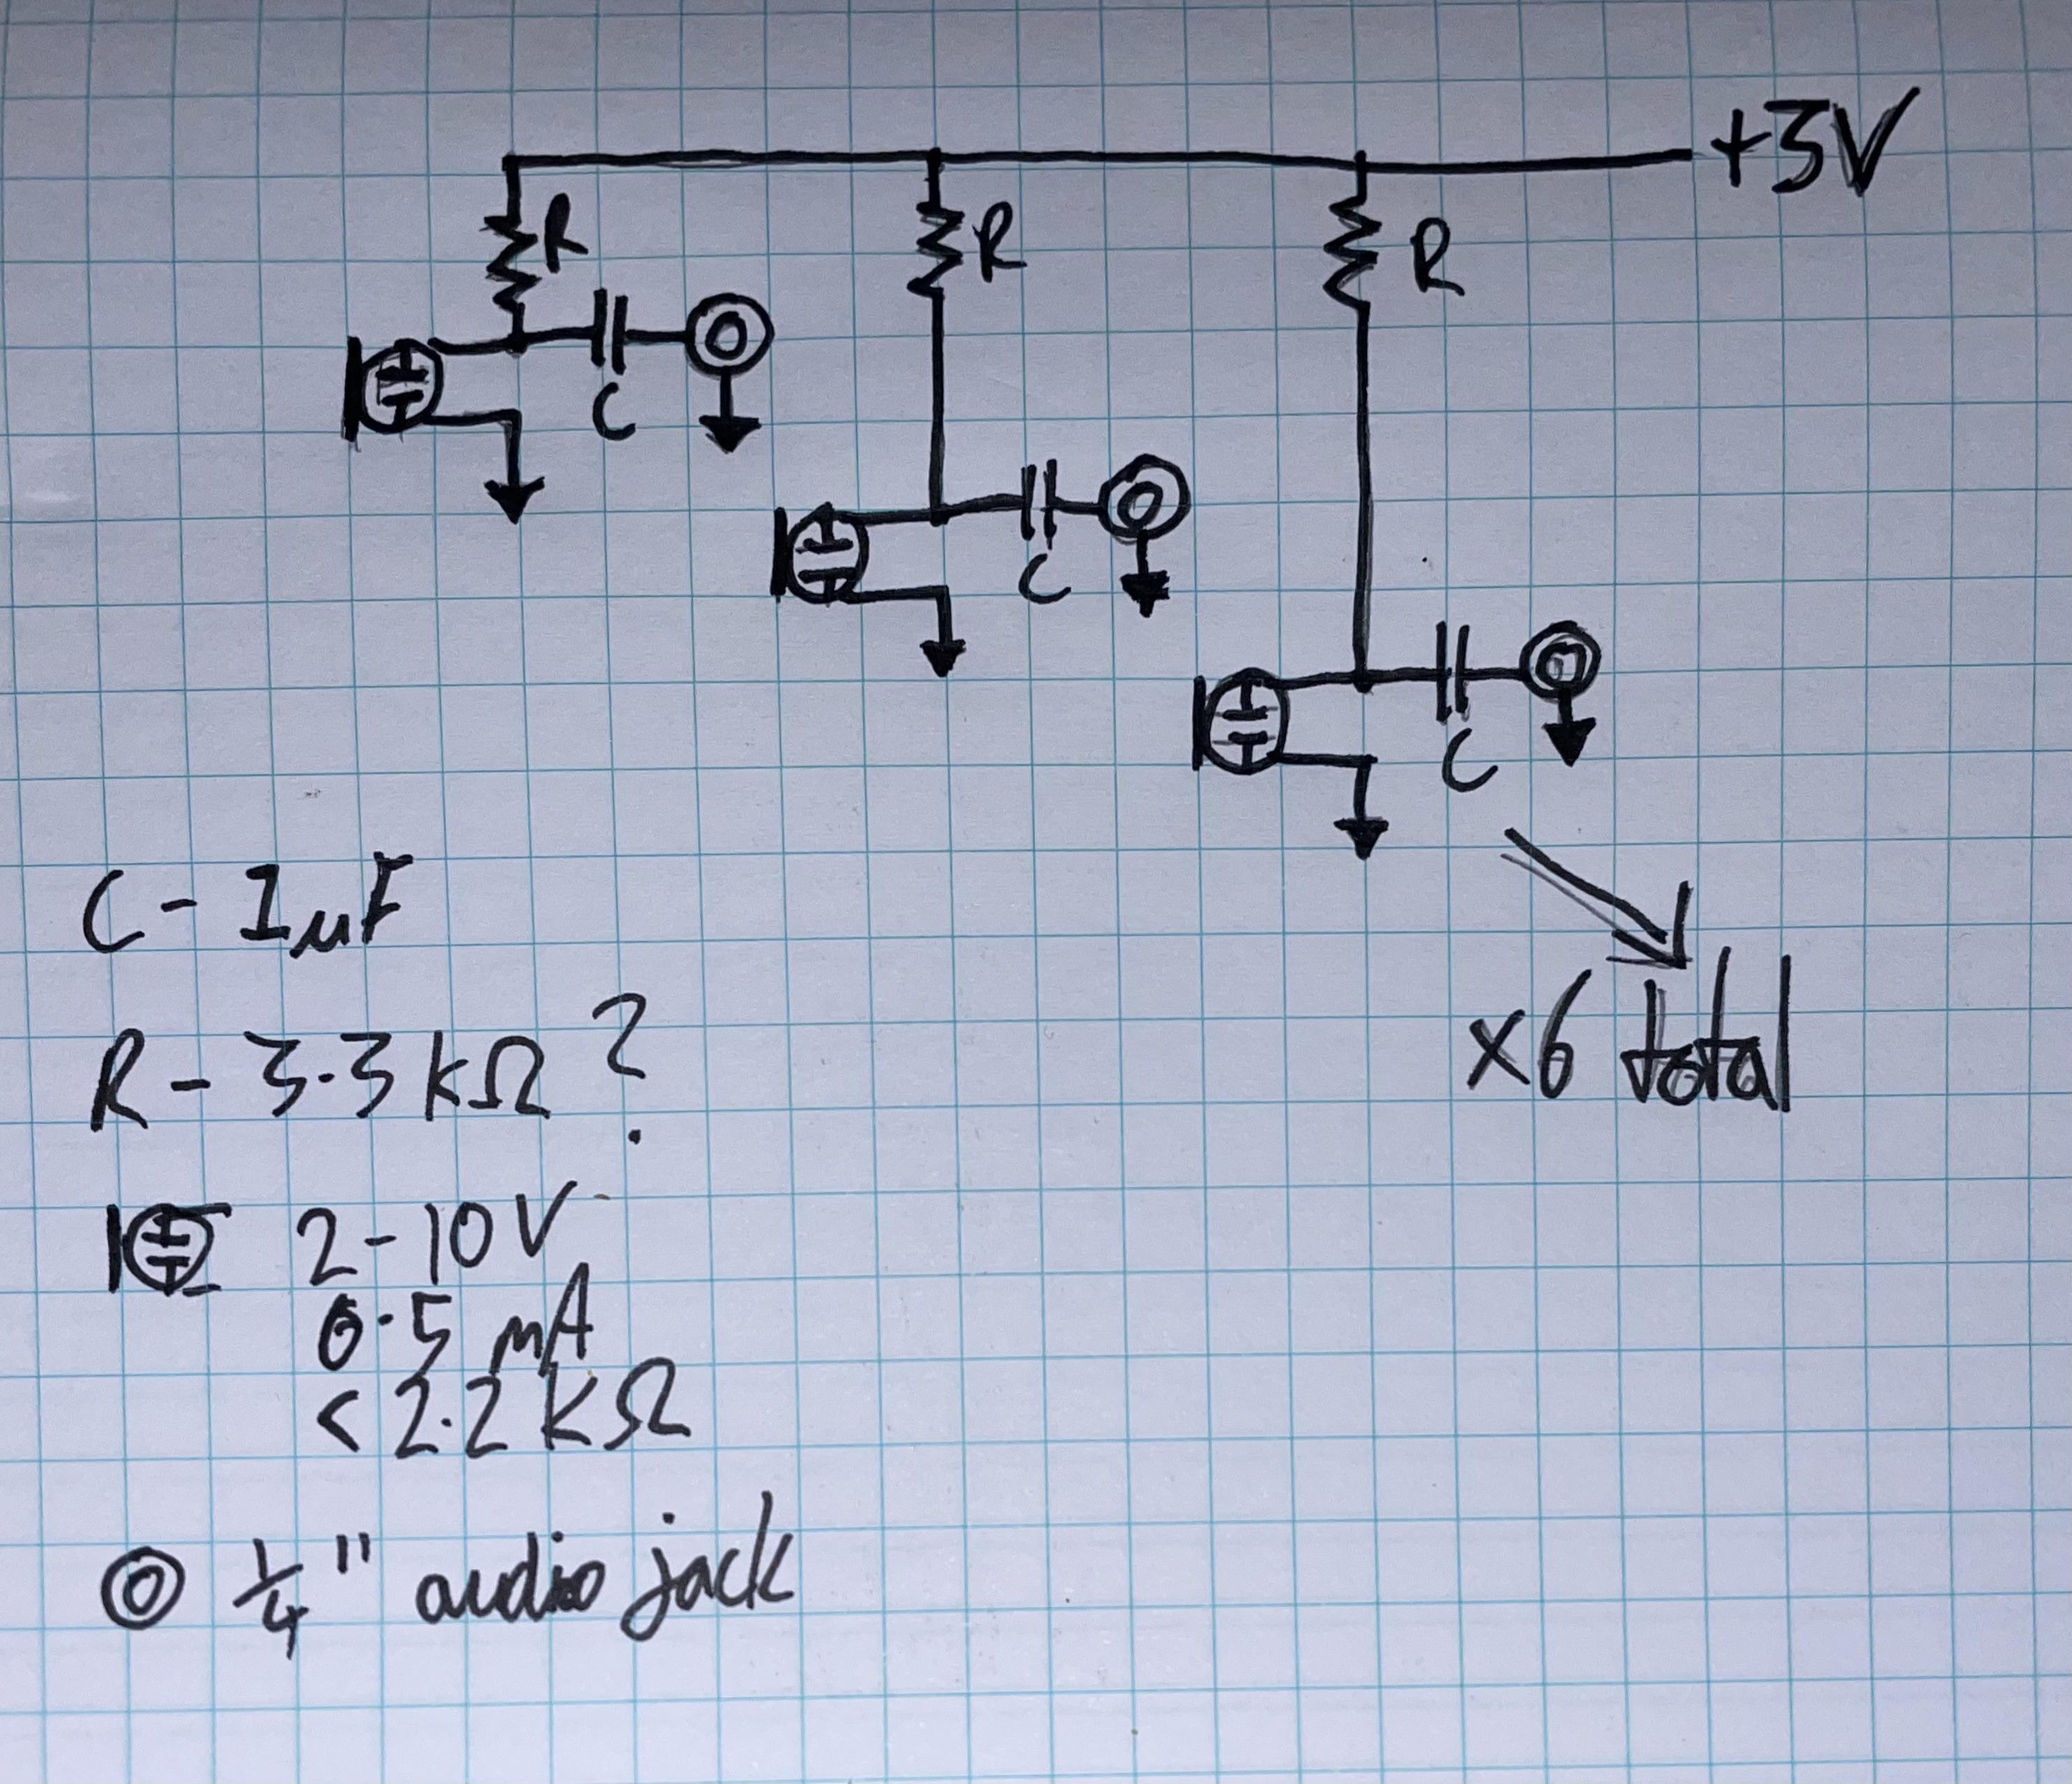 +3V
R
R
R
C
C
C
C - 1µF
R - 3.3 kΩ ?
x6 total
2-10V
0.5 mA
< 2.2 kΩ
1/4" audio jack